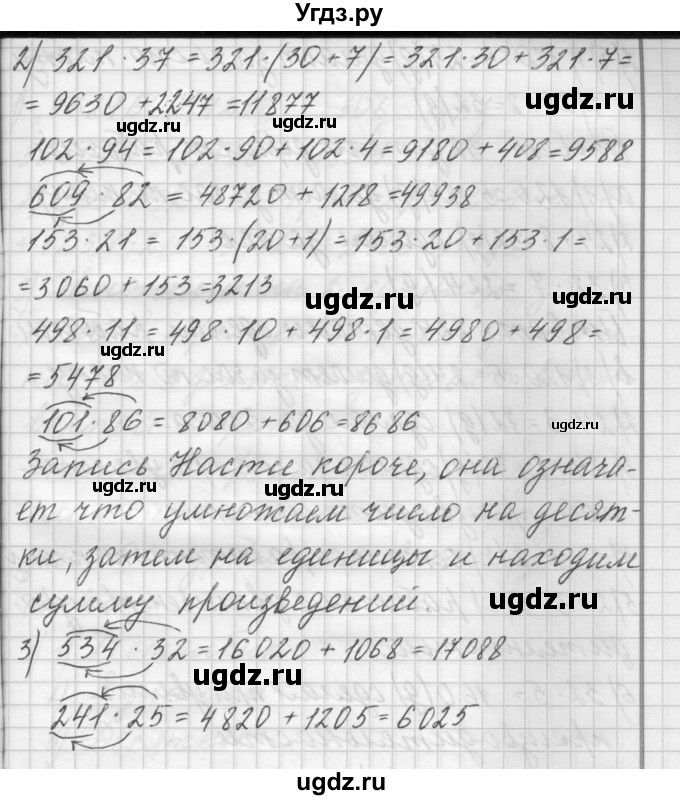 Угдз.ру
2) 321 · 37 = 321·(30+7) = 321·30 + 321·7 =
= 9630 + 2247 = 11877
ugdz.ru
ugdz.ru
ugdz.ru
102 · 94 = 102·90 + 102·4 = 9180 + 408 = 9588
609 · 82 = 48720 + 1218 = 49938
ugdz.ru
ugdz.ru
153 · 21 = 153·(20+1) = 153·20 + 153·1 =
= 3060 + 153 = 3213
ugdz.ru
ugdz.ru
498 · 11 = 498·10 + 498·1 = 4980 + 498 =
ugdz.ru
= 5478
101 · 86 = 8080 + 606 = 8686
ugdz.ru
Запись Насти короче, она означа-
ugdz.ru
ugdz.ru
ugdz.ru
ет что умножаем число на десят-
ки, затем на единицы и находим
сумму произведений.
ugdz.ru
3) 534 · 32 = 16020 + 1068 = 17088
ugdz.ru
241 · 25 = 4820 + 1205 = 6025
ugdz.ru